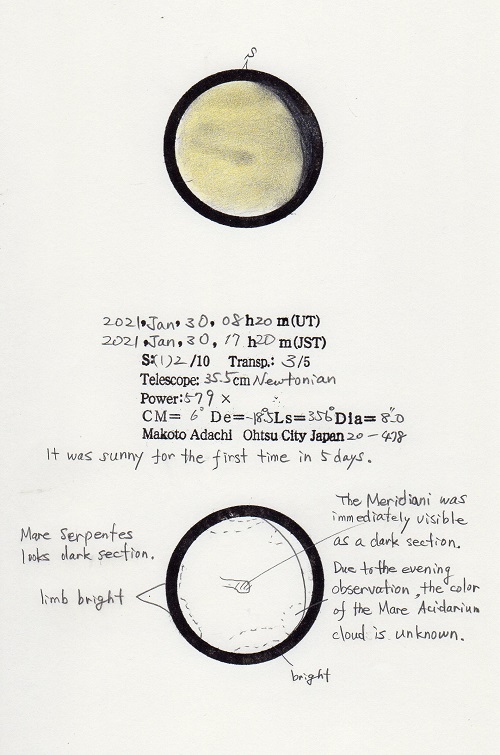 S
2021, Jan, 30, 08 h20 m(UT)
2021, Jan, 30, 17 h20 m(JST)
S:(1)2/10 Transp.: 3/5
Telescope: 35.5cm Newtonian
Power: 579 ×
CM= 6° De=-18.5 Ls=356° Dia= 8".0
Makoto Adachi Ohtsu City Japan 20-478
It was sunny for the first time in 5 days.
The Meridiani was
immediately visible
as a dark section.
Mare Serpentes
looks dark section.
limb bright
Due to the evening
observation, the color
of the Mare Acidarium
cloud is unknown.
bright